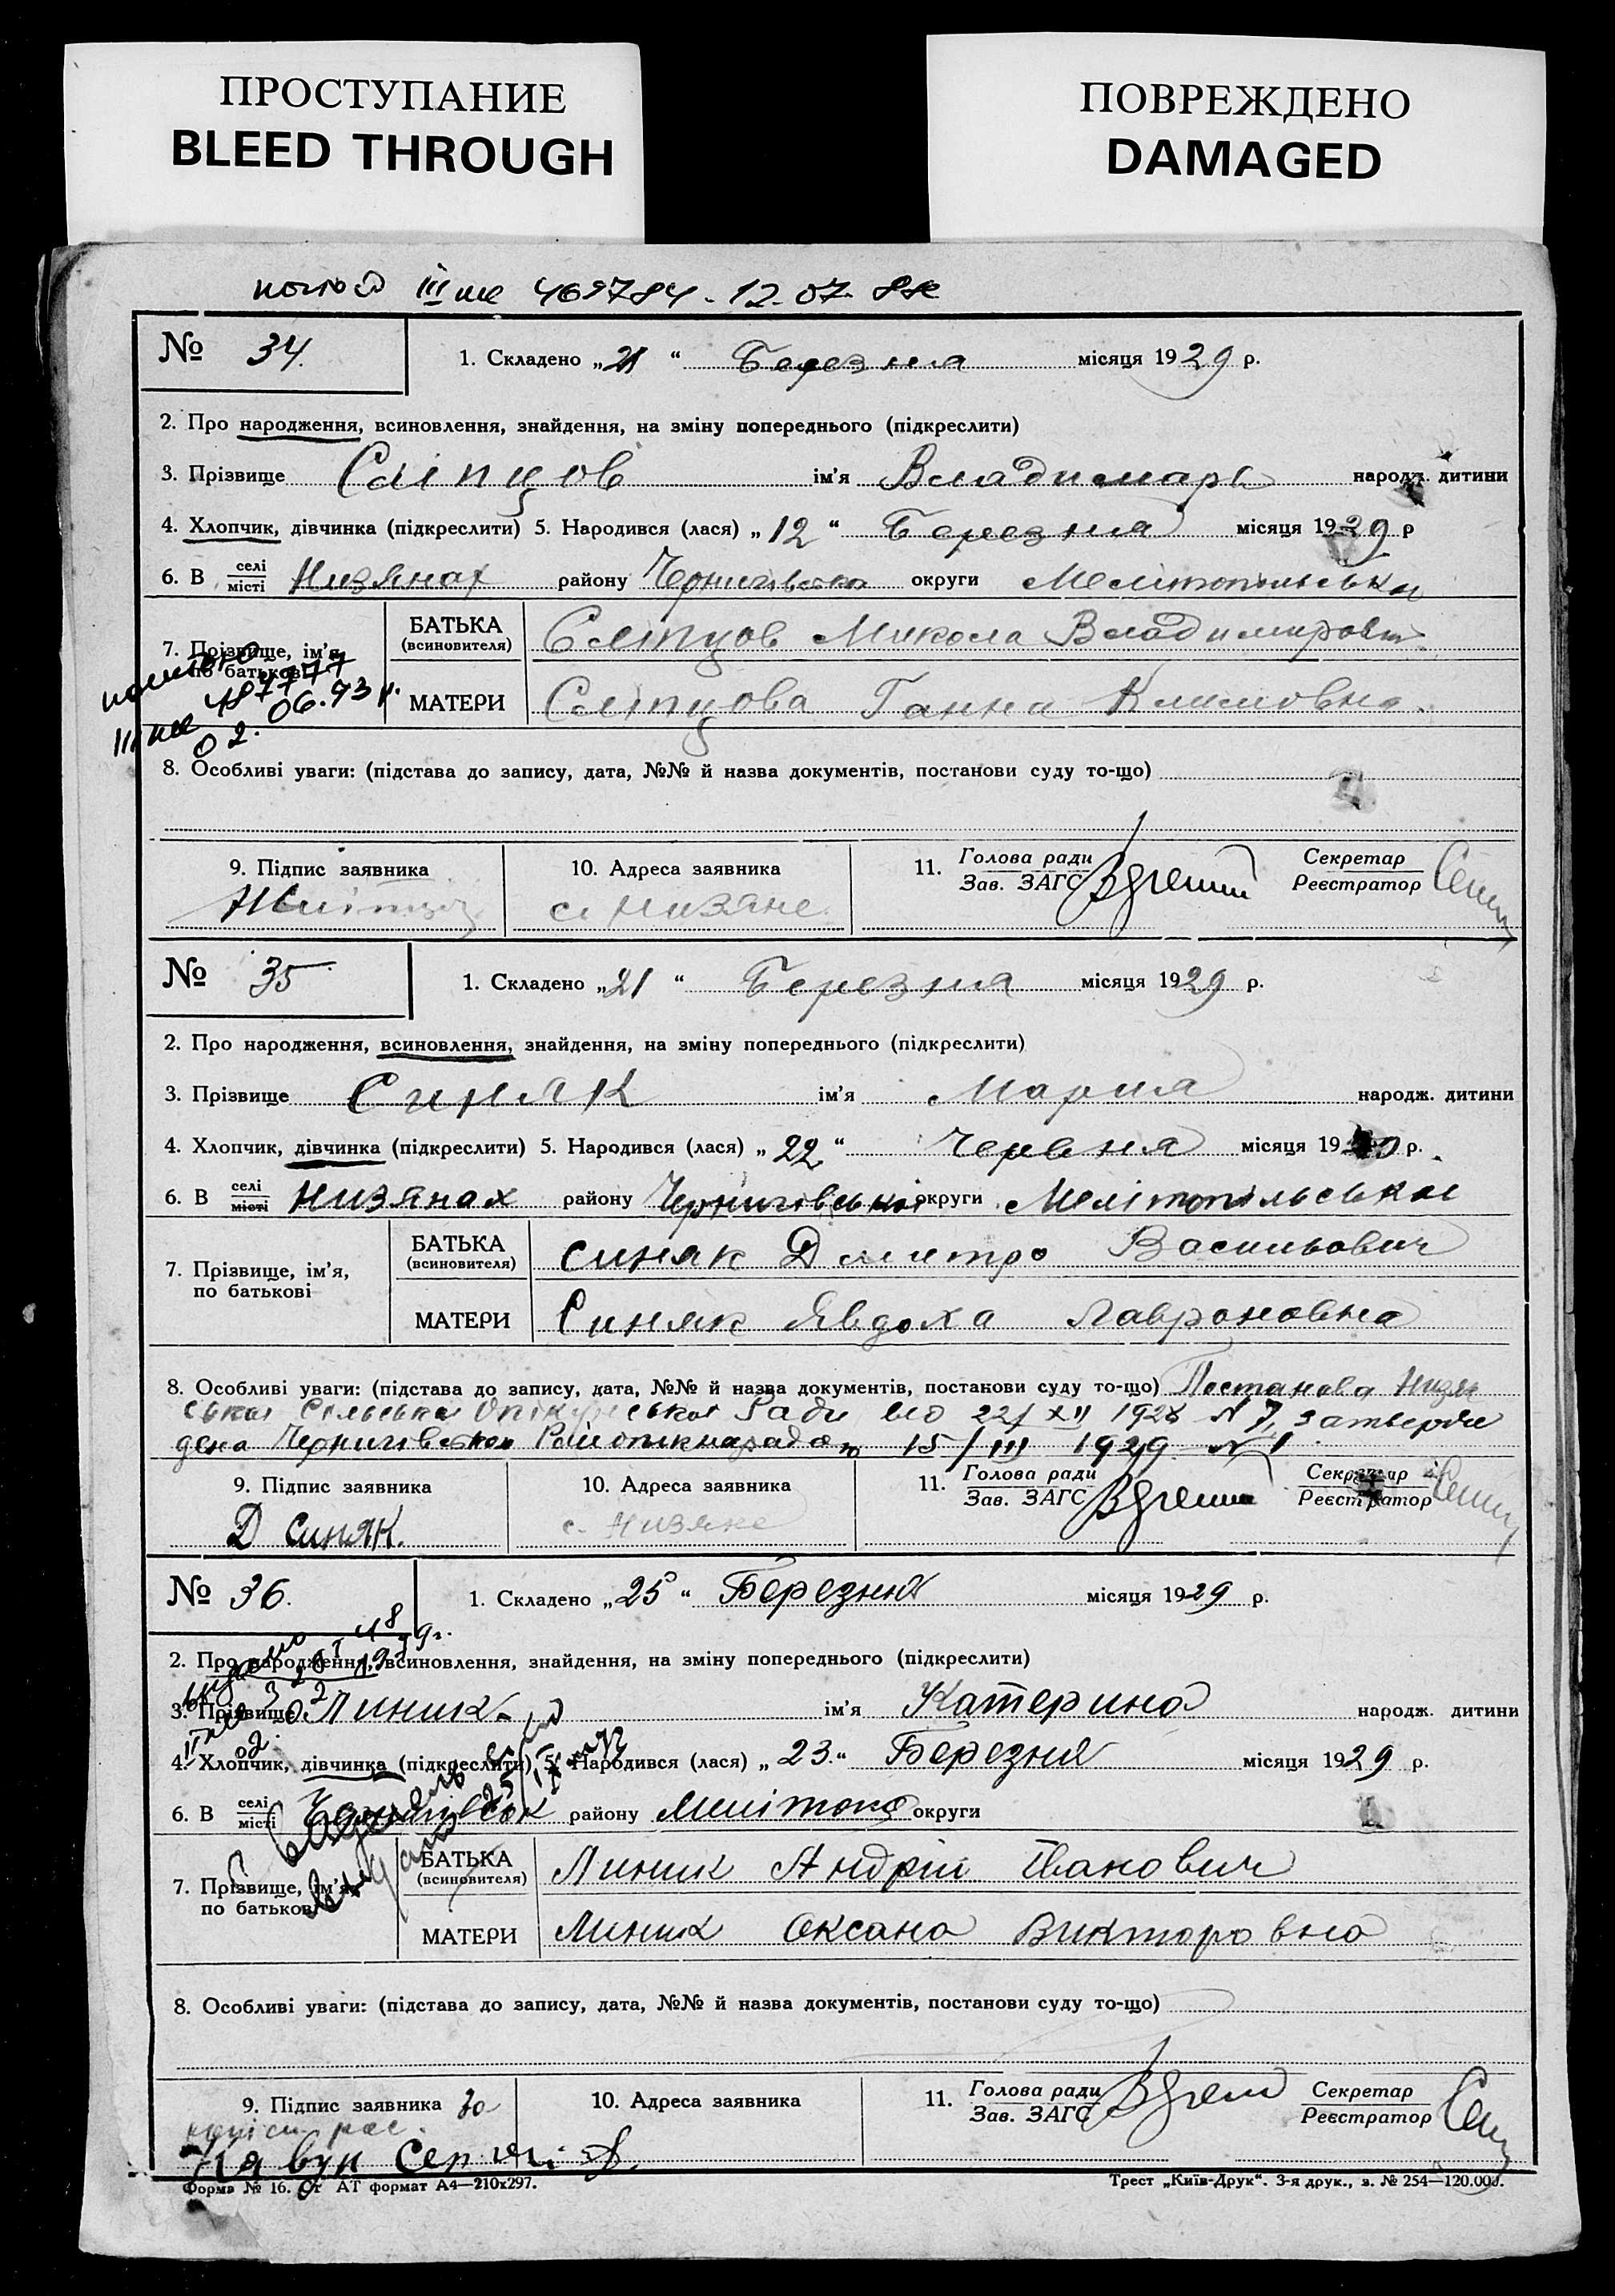 ПРОСТУПАНИЕ
BLEED THROUGH
ПОВРЕЖДЕНО
DAMAGED
III 469784. 12.07.
№ 34.
1. Складено „21“ Березня місяця 1929 р.
2. Про народження, всиновлення, знайдення, на зміну попереднього (підкреслити)
3. Прізвище Сліпцов ім'я Владимарь народж. дитини
4. Хлопчик, дівчинка (підкреслити) 5. Народився (лася) „12“ Березня місяця 1929 р
6. В селі місті Низянах району округи
7. Прізвище, ім'я, по батькові
БАТЬКА (всиновителя) Сліпцов Микола Владимирович
МАТЕРИ Сліпцова Ганна Климовна.
III 487777
02. 06.93 р.
8. Особливі уваги: (підстава до запису, дата, №№ й назва документів, постанови суду то-що)
9. Підпис заявника
10. Адреса заявника
с. Низяне.
11. Голова ради Зав. ЗАГС
Секретар Реєстратор
№ 35
1. Складено „21“ Березня місяця 1929 р.
2. Про народження, всиновлення, знайдення, на зміну попереднього (підкреслити)
3. Прізвище Синяк ім'я Мария народж. дитини
4. Хлопчик, дівчинка (підкреслити) 5. Народився (лася) „22“ Червня місяця 19 р.
6. В селі місті Низянах району Чернигівської округи Мелітопільської
7. Прізвище, ім'я, по батькові
БАТЬКА (всиновителя) Синяк Дмитро Васильович
МАТЕРИ Синяк Явдоха Лавроновна
8. Особливі уваги: (підстава до запису, дата, №№ й назва документів, постанови суду то-що) Постанова Низян
ської Сільської Опікунської Ради від 22/XII 1928 N 7, затвердже
дена 15/III 1929 N 1
9. Підпис заявника
Д Синяк.
10. Адреса заявника
с. Низяне
11. Голова ради Зав. ЗАГС
Секретар Реєстратор
№ 36.
1. Складено „25“ Березня місяця 1929 р.
2. Про народження, всиновлення, знайдення, на зміну попереднього (підкреслити)
3. Прізвище Линик ім'я Катерина народж. дитини
4. Хлопчик, дівчинка (підкреслити) 5. Народився (лася) „23“ Березня місяця 1929 р.
6. В селі місті району округи
7. Прізвище, ім'я, по батькові
БАТЬКА (всиновителя) Линик Андрій Іванович
МАТЕРИ Линик Оксана Викторовна
8. Особливі уваги: (підстава до запису, дата, №№ й назва документів, постанови суду то-що)
9. Підпис заявника За
10. Адреса заявника
11. Голова ради Зав. ЗАГС
Секретар Реєстратор
Форма № 16. АТ формат А4—210х297.
Трест „Київ-Друк“. 3-я друк., з. № 254—120.000.